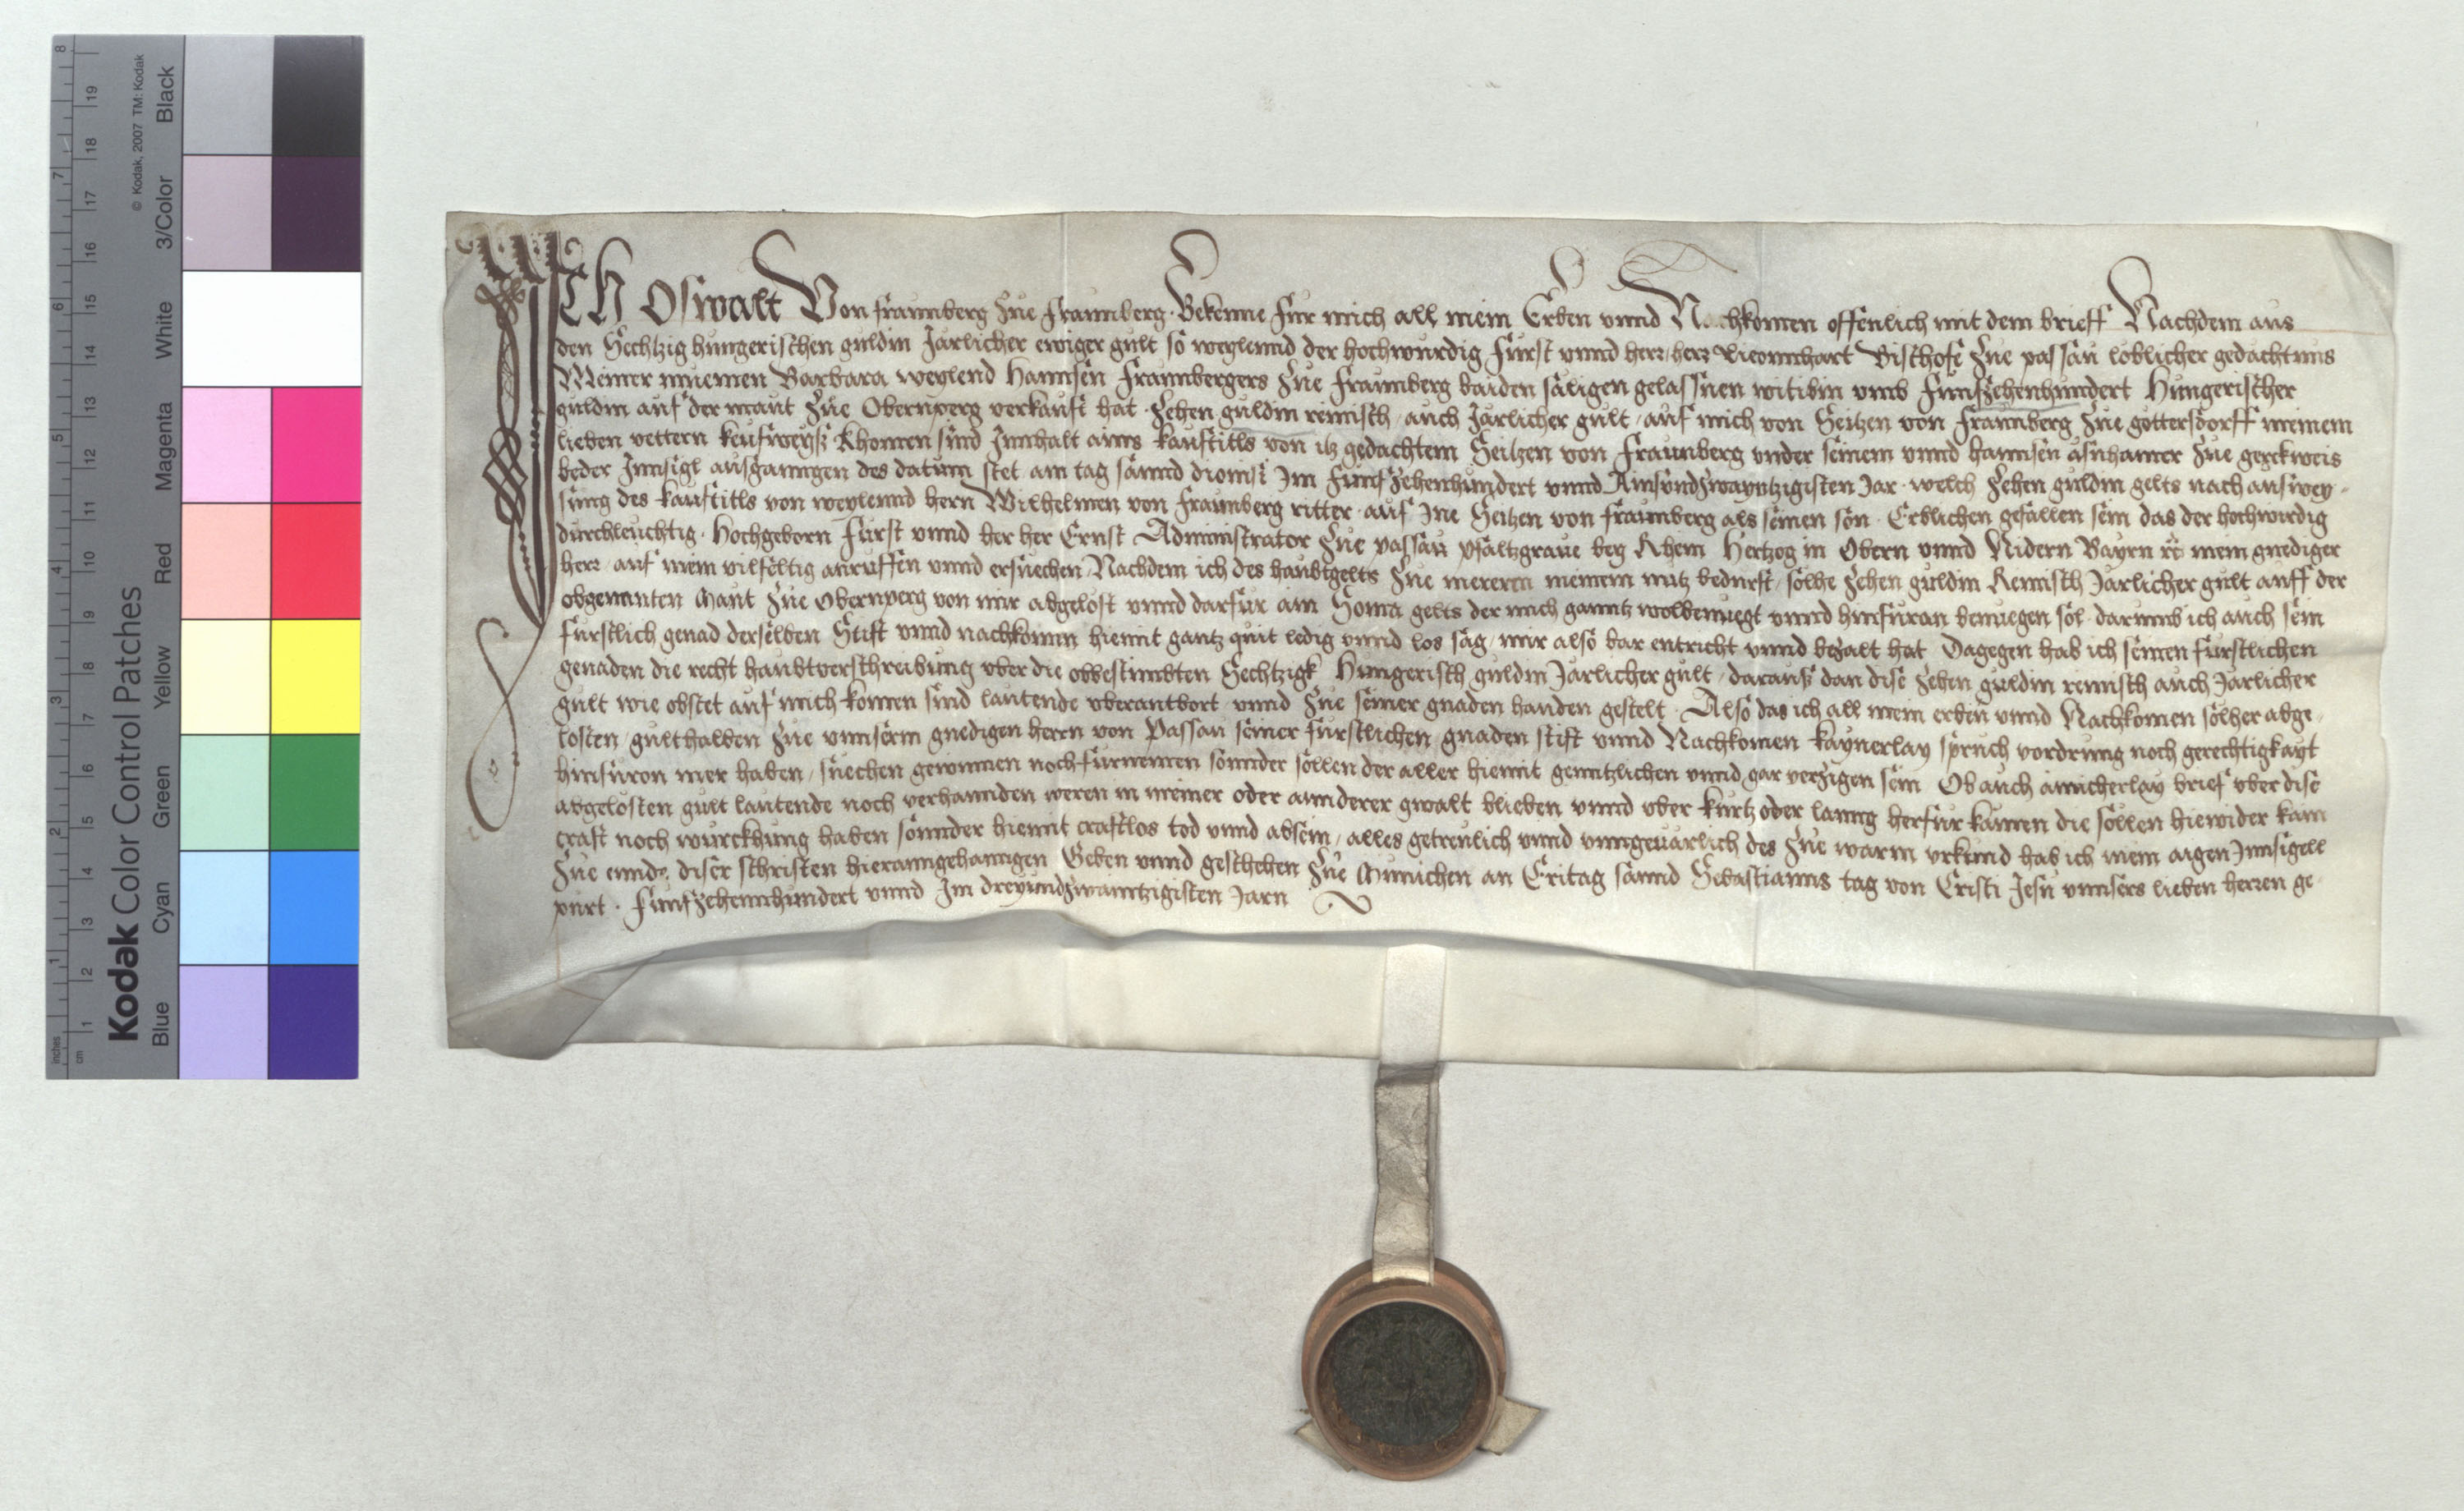 Ich Oswalt Von fraunberg zue fraunberg · Bekenne fur mich all mein Erben vnnd Nachkomen offenlich mit dem brieff Nachdem aus
den Sechtzig hungerischen guldin Jarlicher ewiger gult so weylennd der hochwurdig furst vnnd herr, herr Wieonnhart Bischofe zue passau loblicher gedachtnus
Meiner muemen Barbara weylend Hannsen Fraunbergers zue Fraunberg baiden säligen gelassnen witibin vmb funfzehenhundert Hungerischer
guldin auf der maut zue Obernperg verkauft hat · zehen guldin reinisch, auch Jarlicher gult, auf mich von Seitzen von Fraunberg zue gottersdorff meinem
lieben vettern keufweyß Khomen sind Innhalt ains kauftitls von itz gedachtem Seitzen von Fraunberg vnder seinem vnnd hannsen asnhamer zue gerckweis
beder Innsigl ausganngen des datum stet am tag sannd dionisi Im funfzehenhundert vnnd Ainsundzwayntzigisten Jar · welch zehen guldin gelts nach auswey-
sung des kauftitls von weylennd hern Wilhelmen von fraunberg ritter · auf Ine Seitzen von fraunberg als seinen son · Erblichen gefallen sein das der hochwirdig
durchleuchtig · Hochgeborn furst vnnd her her Ernst Administrator zue passau pfaltzgraue bey Rhein Hertzog in Obern vnnd Nidern Bayrn rc mein gnediger
herr, auf mein vilfeltig anruffen vnnd ersuechen, Nachdem ich des haubtgelts zue mererm meinem nutz bedurft, solhe zehen guldin Reinisch Jarlicher gult auff der
obgenanten Maut zue Obernperg von mir abgelost vnnd darfur ain Soma gelts der mich ganntz wolbenuegt vnnd hinfuran benuegen sol · darumb ich auch sein
furstlich genad derselben Stift vnnd nachkomn hiemit gantz quit ledig vnnd los sag, mir also bar entricht vnnd bezalt hat Dagegen hab ich seinen furstlichen
genaden die recht haubtverschreibung vber die obbestimbten Sechtzigk Hungerisch guldin Jarlicher gult, darauß dan dise zehen guldin reinisch auch Jarlicher
gult wie obstet auf mich komen sind lautende vberantbort vnnd zue seiner gnaden handen gestelt · Also das ich all mein erben vnnd Nachkomen solher abge-
losten, gulthalben zue vnnserm gnedigen herrn von Passau seiner furstlichen gnaden stift vnnd Nachkomen kaynerlay spruch vordrung noch gerechtigkayt
hinfuron mer haben, suechen gewinnen noch furnemen sonnder sollen der aller hiemit genntzlichen vnnd gar verzigen sein Ob auch ainicherlay brief vber dise
abgelosten gult lautende noch verhannden weren in meiner oder annderer gwalt blieben vnnd vber kurtz oder lanng herfur kamen die sollen hiewider kain
craft noch wurckhung haben sonnder hiemit craftlos tod vnnd absein, alles getreulich vnnd vnngeuärlich des zue warm vrkund hab ich mein aigen Innsigell
zue ennde diser schriften hieranngehanngen Geben vnnd geschehen zue Munichen an Eritag sannd Sebastianns tag von Cristi Jesu vnnsers lieben herren ge-
purt · funfzehennhundert vnnd Im dreyundzwaintzigisten Jarn
Kodak Color Control Patches
© Kodak, 2007 TM: Kodak
Blue Cyan Green Yellow Red Magenta White 3/Color Black
inches 1 2 3 4 5 6 7 8
cm 1 2 3 4 5 6 7 8 9 10 11 12 13 14 15 16 17 18 19